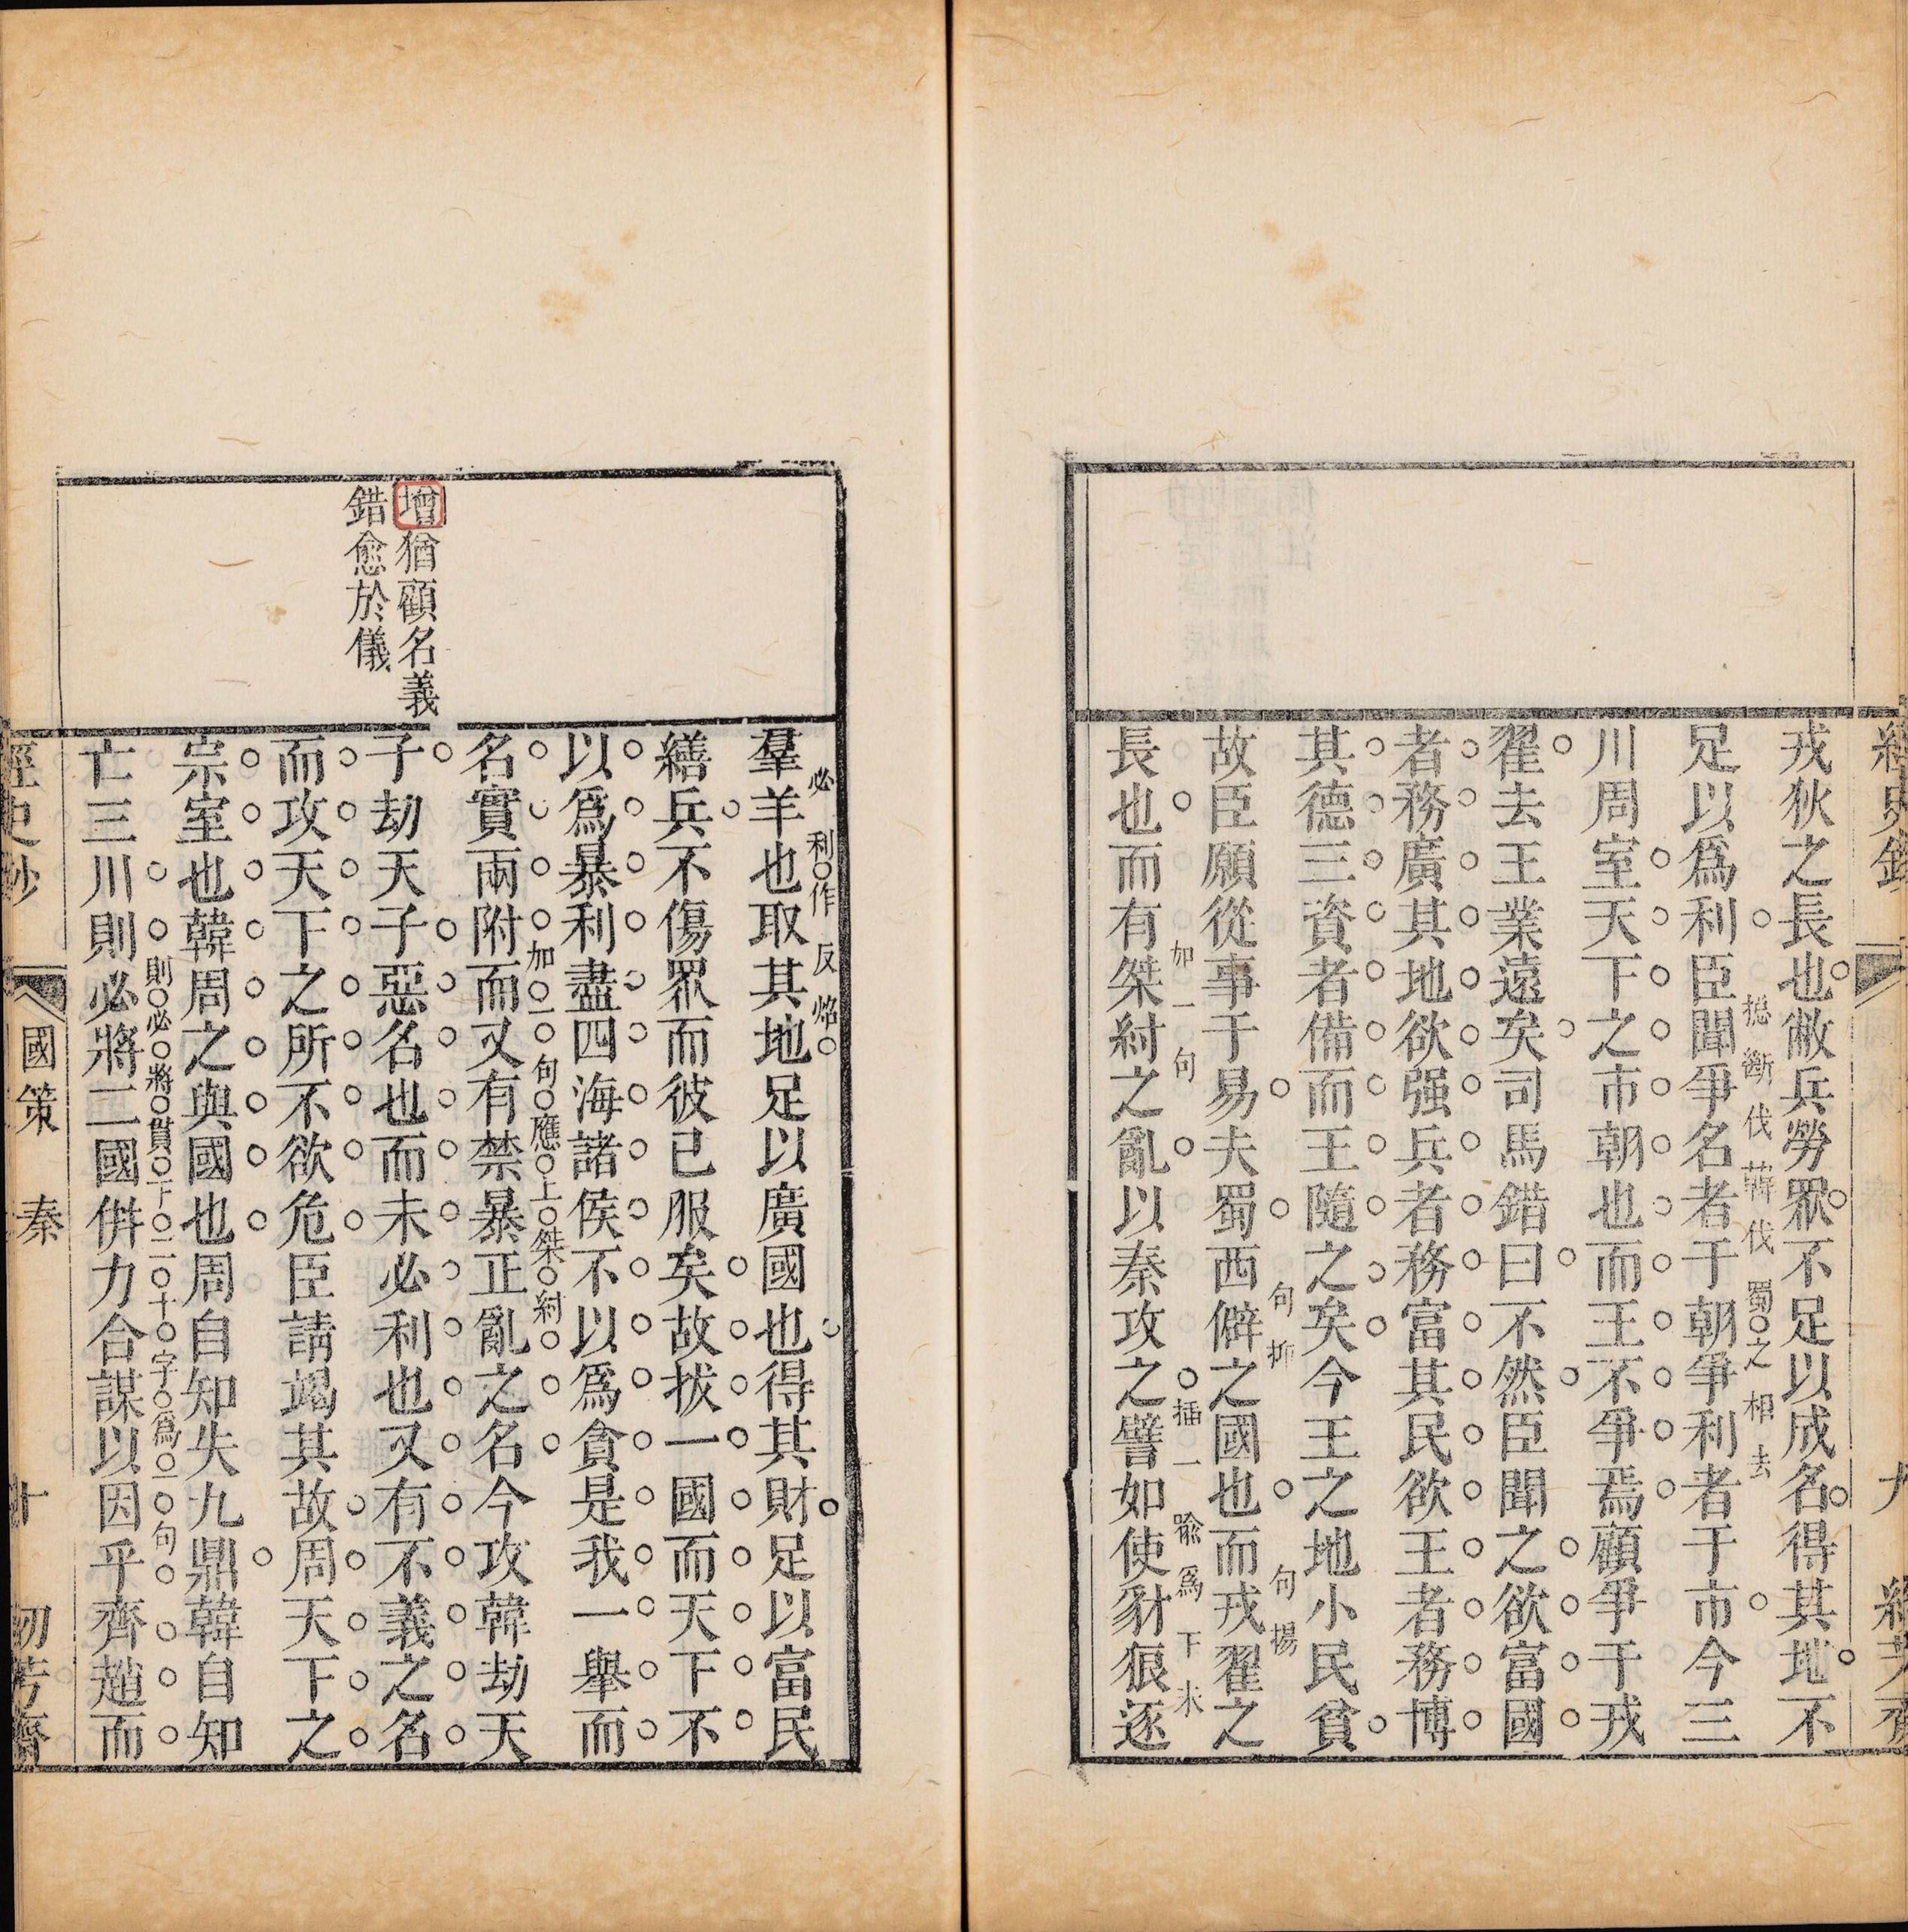 戎狄之長也敝兵勞眾不足以成名得其地不
足以爲利臣聞爭名者于朝爭利者于市今三
摠斷伐韓伐蜀之相去
川周室天下之市朝也而王不爭焉顧爭于戎
翟去王業遠矣司馬錯曰不然臣聞之欲富國
者務廣其地欲强兵者務富其民欲王者務博
其德三資者備而王隨之矣今王之地小民貧
故臣願從事于易夫蜀西僻之國也而戎翟之
句折句揚
長也而有桀紂之亂以秦攻之譬如使豺狼逐
加一句插一喻爲下未
九
增猶顧名義
錯愈於儀
羣羊也取其地足以廣國也得其財足以富民
必利作反焰
繕兵不傷眾而彼已服矣故拔一國而天下不
以爲暴利盡四海諸侯不以爲貪是我一舉而
名實兩附而又有禁暴正亂之名今攻韓劫天
加一句應上桀紂
子劫天子惡名也而未必利也又有不義之名
而攻天下之所不欲危臣請竭其故周天下之
宗室也韓周之與國也周自知失九鼎韓自知
亡三川則必將二國併力合謀以因乎齊趙而
則必將貫下二十字爲一句
經史鈔
國策 秦
十